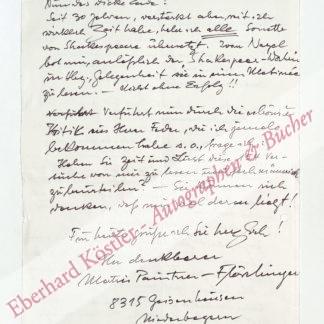 Nun das dicke Ende:
Seit 30 Jahren, verstärkt aber, seit ich
wirklich Zeit habe, habe ich alle Sonette
von Shakespeare übersetzt. Ivan Nagel
bot mir, anläßlich der Shakespeare-
in Hbg. Gelegenheit sie in einer Matinée
zu lesen. – Nicht ohne Erfolg!!
Verführt nun durch die schönste
Kritik aus Ihrer Feder, die ich jemals
bekommen habe s.o., frage ich:
Haben Sie Zeit und Lust diese
suche von mir zu lesen und
zu beurteilen? – Sie können sich
denken, daß mir viel daran liegt!
Für heute grüße ich Sie herzlich!
Ihr dankbarer
Paintner-Flörlinger
8315 Geisenhausen
Niederbayern
Eberhard Köstler Autographen & Bücher